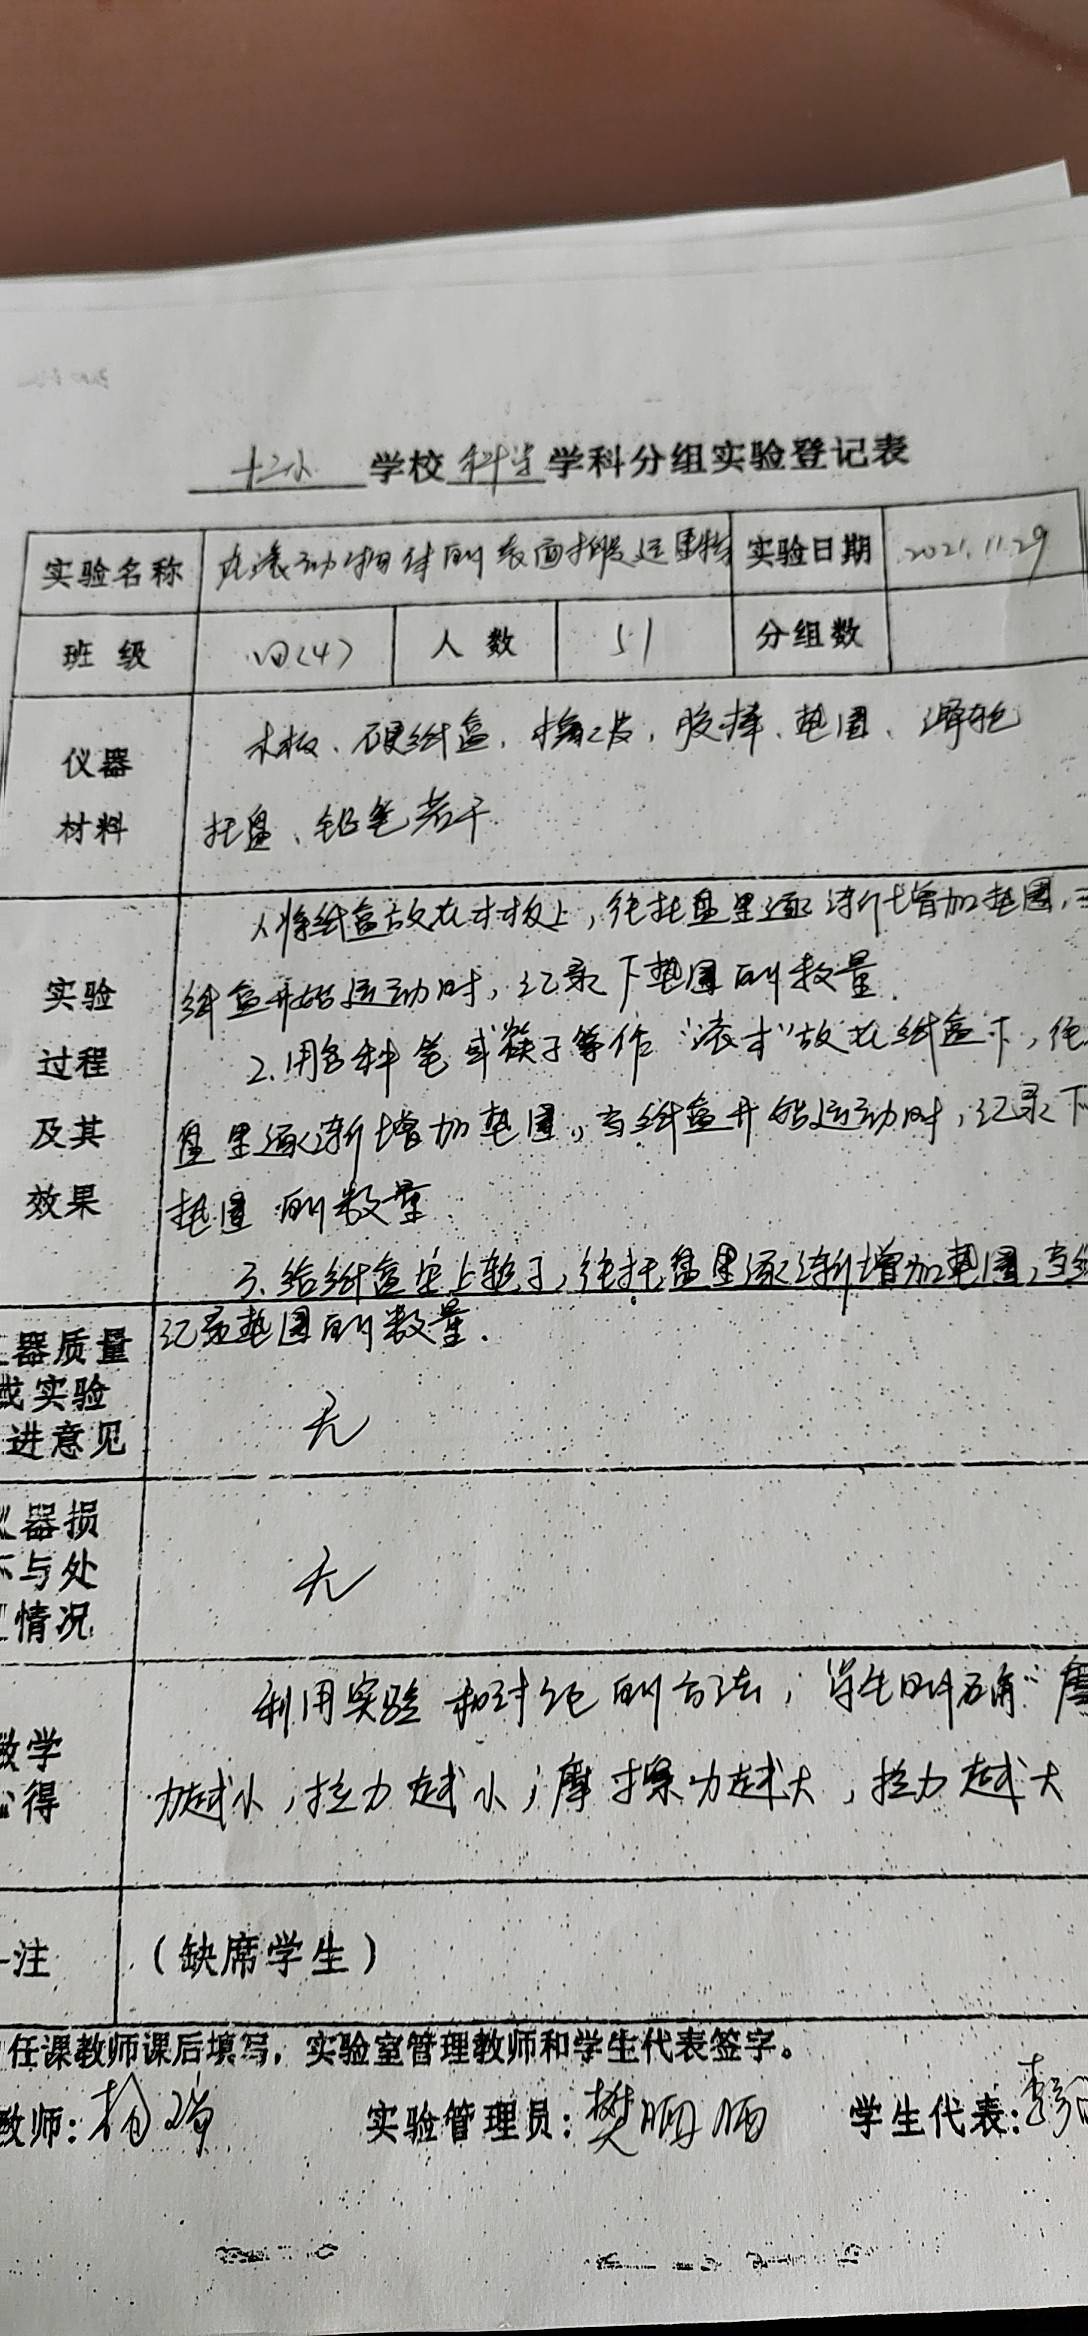 十二小 学校 科学 学科分组实验登记表
实验名称 在滚动物体的表面搬运重物 实验日期 2021.11.29
班级 四(4) 人数 51 分组数
仪器材料 木板、硬纸盒、橡皮、胶棒、垫圈、滑轮
托盘、铅笔若干
实验过程及其效果 1.将纸盒放在木板上,往托盘里逐渐增加垫圈,
纸盒开始运动时,记录下垫圈的数量.
2.用各种笔或筷子等作“滚木”放在纸盒下,往
盘里逐渐增加垫圈,当纸盒开始运动时,记录下
垫圈的数量.
3.给纸盒安上轮子,往托盘里逐渐增加垫圈,当
记录垫圈的数量.
器质量
或实验
进意见 无
器损
与处
情况 无
教学
得 利用实验和对比的方法,学生明确“摩
力越小,拉力越小;摩擦力越大,拉力越大
注 (缺席学生)
任课教师课后填写,实验室管理教师和学生代表签字。
教师: 实验管理员:樊 学生代表:李